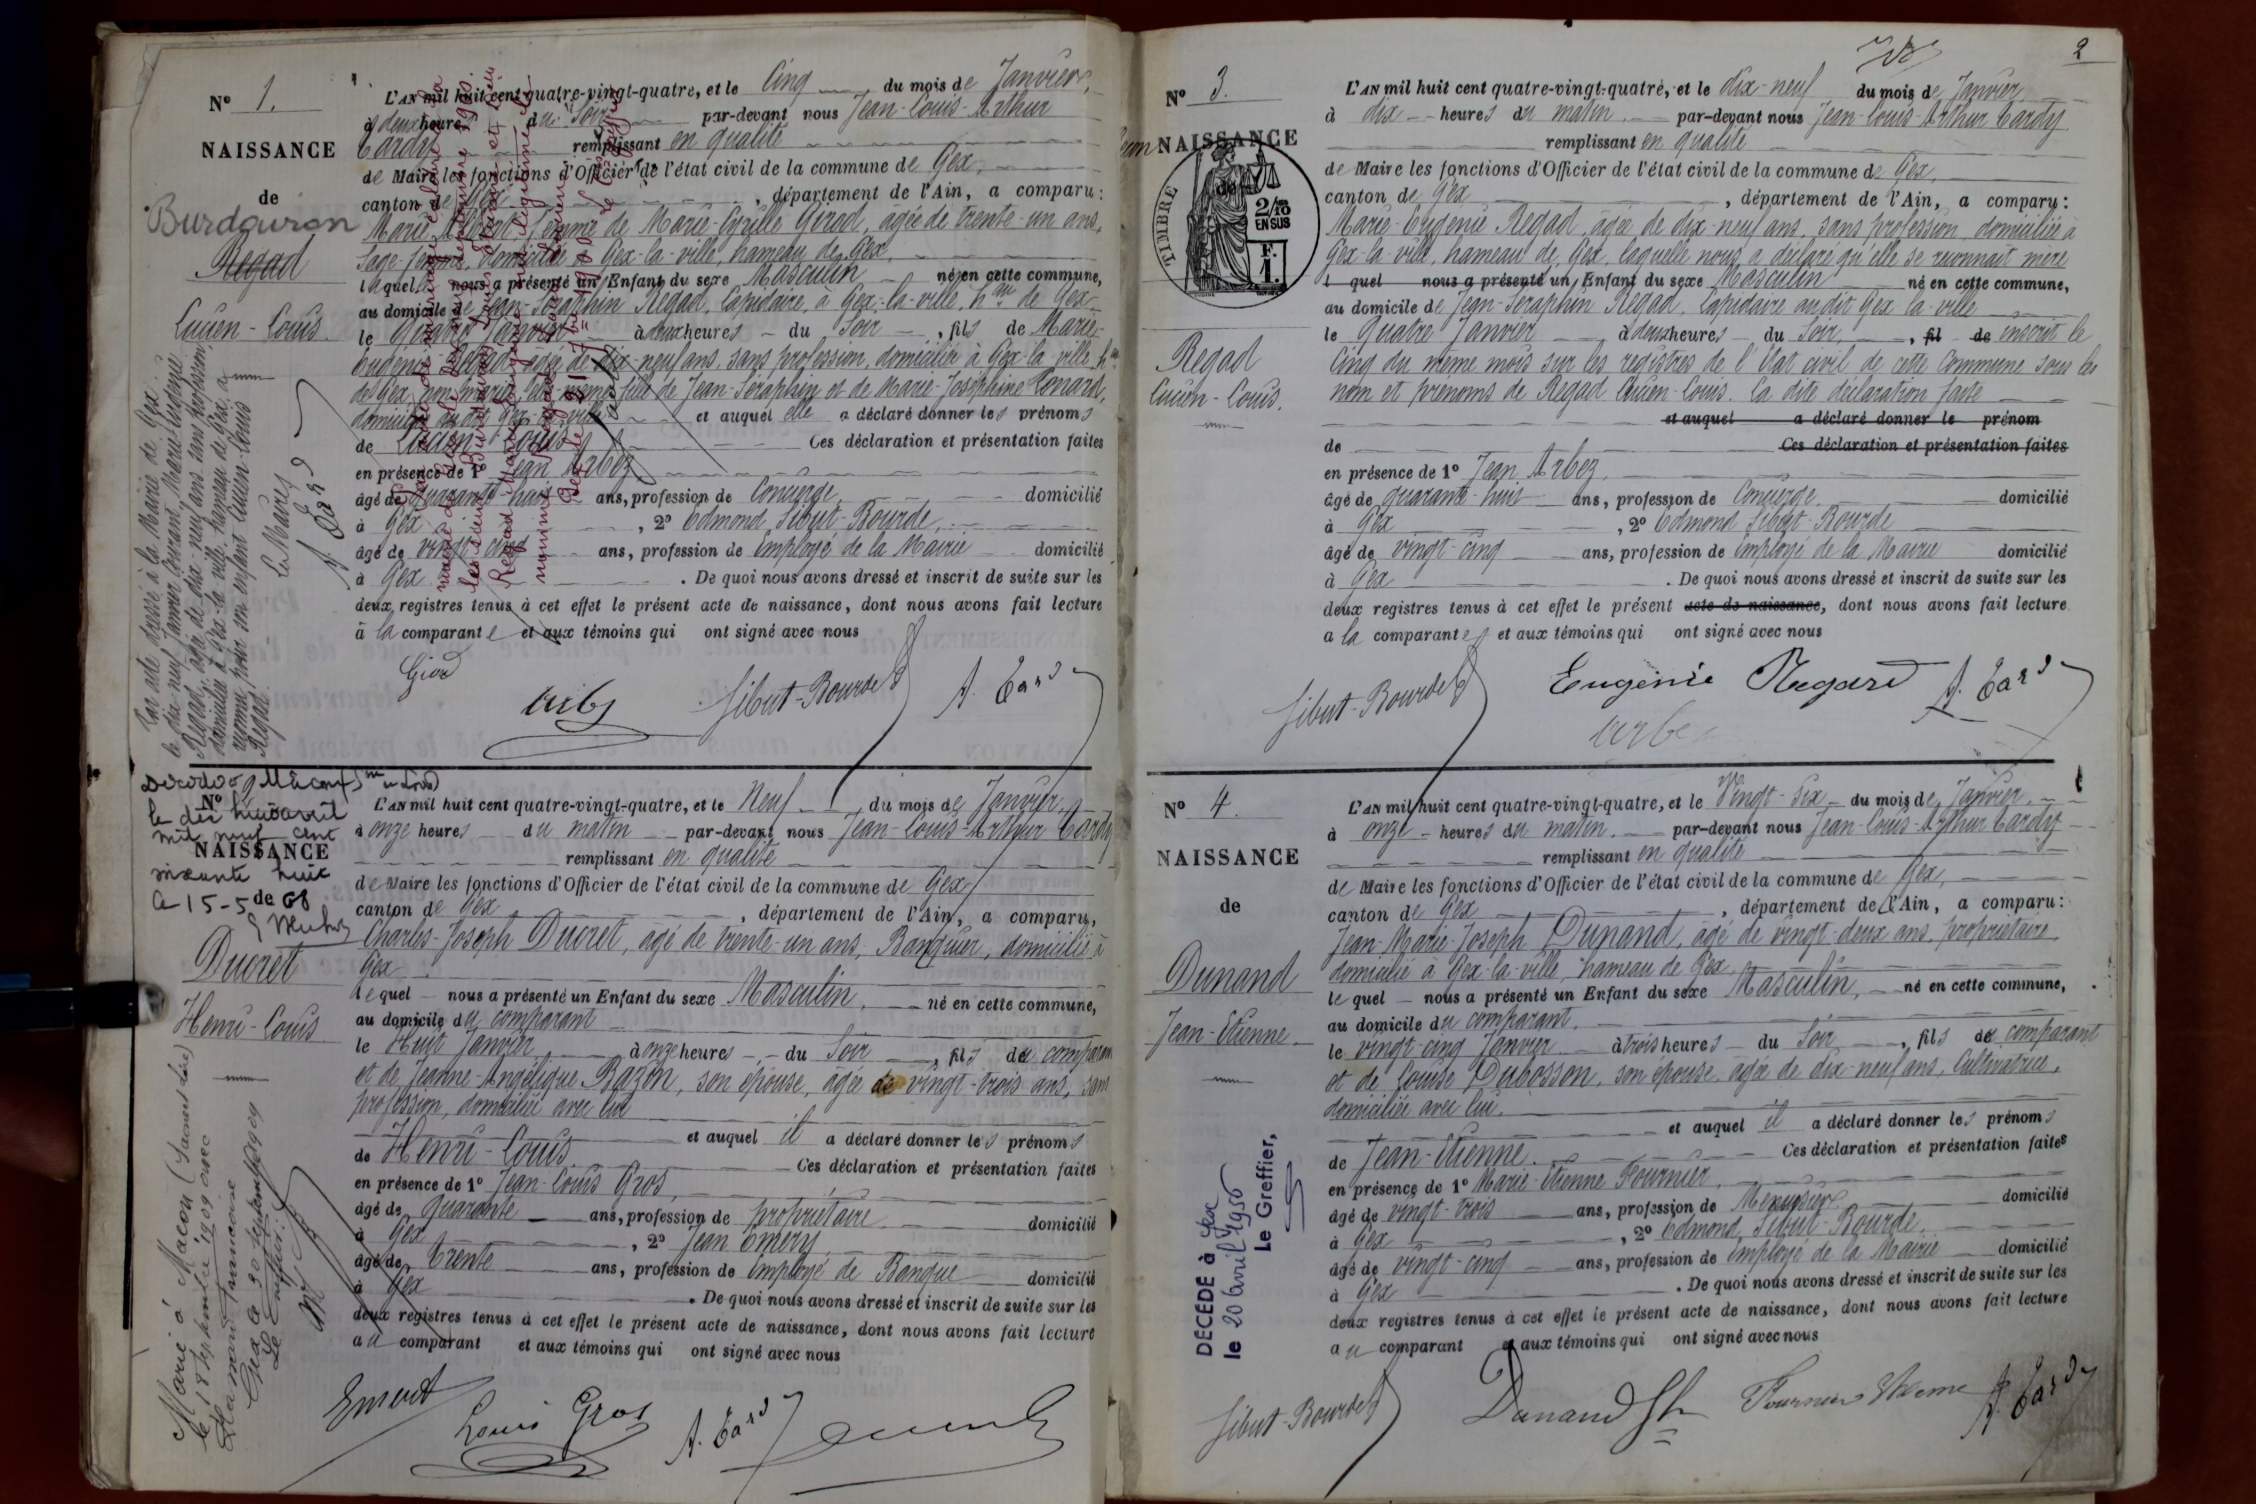 N° 1.
NAISSANCE
de
Burdairon
Regad
Lucien-Louis.
Par acte dressé à la Mairie de Gex
le dix-neuf Janvier courant, Marie Eugénie
Regad, âgée de dix-neuf ans, sans profession,
domiciliée à Gex-la-ville, hameau de Gex, a
reconnu pour son enfant Lucien-Louis
Regad.
Le Maire,
A. Card
L'AN mil huit cent quatre-vingt-quatre, et le Cinq du mois de Janvier,
à deux heures du Soir par-devant nous Jean-Louis-Arthur
Cardy remplissant en qualité
de Maire les fonctions d'Officier de l'état civil de la commune de Gex,
canton de Gex, département de l'Ain, a comparu:
Marie femme de Marie-Cyrille Girod, âgée de trente-un ans,
Sage-femme, domiciliée à Gex-la-ville, hameau de Gex,
laquelle nous a présenté un Enfant du sexe Masculin né en cette commune,
au domicile de Jean-Séraphin Regad, Lapidaire, à Gex-la-ville, hau de Gex
le Quatre Janvier à deux heures du Soir, fils de Marie-
Eugénie Regad, âgée de dix-neuf ans, sans profession, domiciliée à Gex-la-ville, hau
de Gex, non mariée, elle-même fille de Jean-Séraphin et de Marie-Joséphine Lonard,
domiciliés au dit Gex-la-ville et auquel elle a déclaré donner les prénoms
de Lucien-Louis Ces déclaration et présentation faites
en présence de 1° Jean Arbez
âgé de quarante-huit ans, profession de Concierge, domicilié
à Gex, 2° Edmond Sibut-Bourde,
âgé de vingt-cinq ans, profession de Employé de la Mairie domicilié
à Gex. De quoi nous avons dressé et inscrit de suite sur les
deux registres tenus à cet effet le présent acte de naissance, dont nous avons fait lecture
à la comparante et aux témoins qui ont signé avec nous
Girod
Arbez
Sibut-Bourde
A. Card
N°
NAISSANCE
de
le dix huit avril
mil neuf cent
soixante huit
Ducret
Henri-Louis
Marié à Macon (Saone et Loire)
le 18 septembre 1909 avec
Françoise
Gex le 30 septembre 1909
Le Greffier:
L'AN mil huit cent quatre-vingt-quatre, et le Neuf du mois de Janvier,
à onze heures du matin par-devant nous Jean-Louis-Arthur Cardy
remplissant en qualité
de Maire les fonctions d'Officier de l'état civil de la commune de Gex
canton de Gex, département de l'Ain, a comparu,
Charles-Joseph Ducret, âgé de trente-un ans, Banquier, domicilié à
Gex
lequel nous a présenté un Enfant du sexe Masculin, né en cette commune,
au domicile du comparant
le Huit Janvier à onze heures du Soir, fils du comparant
et de Jeanne-Angélique Bazin, son épouse, âgée de vingt-trois ans, sans
profession, domiciliée avec lui
et auquel il a déclaré donner les prénoms
de Henri-Louis Ces déclaration et présentation faites
en présence de 1° Jean-Louis Gros,
âgé de quarante ans, profession de propriétaire domicilié
à Gex, 2° Jean Emery
âgé de trente ans, profession de Employé de Banque domicilié
à Gex. De quoi nous avons dressé et inscrit de suite sur les
deux registres tenus à cet effet le présent acte de naissance, dont nous avons fait lecture
au comparant et aux témoins qui ont signé avec nous
Louis Gros
A. Card
2
N° 3.
NAISSANCE
de
TIMBRE
2/10 EN SUS
F. 1.
Regad
Lucien-Louis.
L'AN mil huit cent quatre-vingt-quatre, et le dix-neuf du mois de Janvier
à dix heures du matin par-devant nous Jean-Louis-Arthur Cardy
remplissant en qualité
de Maire les fonctions d'Officier de l'état civil de la commune de Gex,
canton de Gex, département de l'Ain, a comparu:
Marie-Eugénie Regad, âgée de dix-neuf ans, sans profession domiciliée à
Gex-la-ville, hameau de Gex, laquelle nous a déclaré qu'elle se reconnaît mère
l quel nous a présenté un Enfant du sexe Masculin né en cette commune,
au domicile de Jean-Séraphin Regad, Lapidaire au dit Gex-la-ville
le Quatre Janvier à deux heures du Soir, fil de inscrit le
Cinq du même mois sur les registres de l'Etat civil de cette Commune sous les
nom et prénoms de Regad Lucien-Louis. La dite déclaration faite
et auquel a déclaré donner le prénom
de Ces déclaration et présentation faites
en présence de 1° Jean Arbez
âgé de quarante-huit ans, profession de Concierge domicilié
à Gex, 2° Edmond Sibut-Bourde
âgé de vingt-cinq ans, profession de Employé de la Mairie domicilié
à Gex. De quoi nous avons dressé et inscrit de suite sur les
deux registres tenus à cet effet le présent acte de naissance, dont nous avons fait lecture
a la comparante et aux témoins qui ont signé avec nous
Sibut-Bourde
Eugénie Regard
A. Card
Arbez
N° 4.
NAISSANCE
de
Dunand
Jean-Etienne
DECEDÉ à Gex
le 20 avril 1956
Le Greffier,
L'AN mil huit cent quatre-vingt-quatre, et le Vingt-Six du mois de Janvier,
à onze heures du matin par-devant nous Jean-Louis-Arthur Cardy
remplissant en qualité
de Maire les fonctions d'Officier de l'état civil de la commune de Gex,
canton de Gex, département de l'Ain, a comparu:
Jean-Marie-Joseph Dunand, âgé de vingt-deux ans, propriétaire
domicilié à Gex-la-ville, hameau de Gex
lequel nous a présenté un Enfant du sexe Masculin, né en cette commune,
au domicile du comparant.
le vingt-cinq Janvier à trois heures du Soir, fils du comparant
et de Louise Dubosson, son épouse, âgée de dix-neuf ans, Cultivatrice,
domiciliée avec lui.
et auquel il a déclaré donner les prénoms
de Jean-Etienne. Ces déclaration et présentation faites
en présence de 1° Marie-Etienne Fournier,
âgé de vingt-trois ans, profession de Menuisier domicilié
à Gex, 2° Edmond Sibut-Bourde,
âgé de vingt-cinq ans, profession de Employé de la Mairie domicilié
à Gex. De quoi nous avons dressé et inscrit de suite sur les
deux registres tenus à cet effet le présent acte de naissance, dont nous avons fait lecture
au comparant & aux témoins qui ont signé avec nous
Sibut-Bourde
Dunand
Fournier Etienne
A. Card